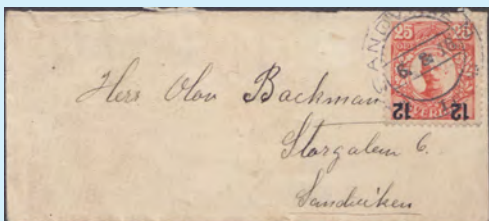 SANDV
25 25
12 12
Herr Olov Backman
Storgatan 6.
Sandviken